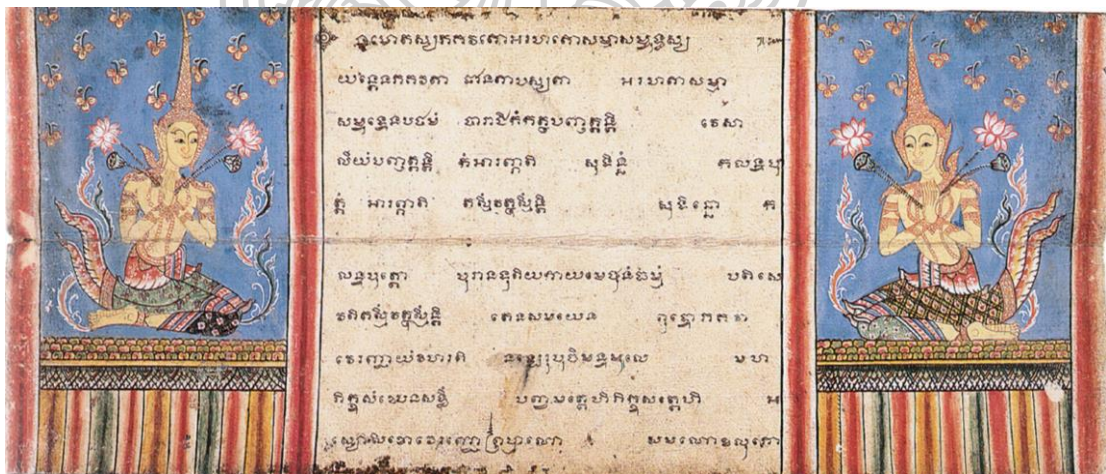 នមោតស្សភគវតោអរហតោសម្មាសម្ពុទ្ធស្ស
យំន្តេនភគវតា ជានតាបស្សតា អរហតាសម្មា
សម្ពុទ្ធេនបឋមំ បារាជិកំកត្ថបញ្ញត្តន្តិ វេសា
លិយំបញ្ញត្តន្តិ កំអារព្ភាតិ សុទិន្នំ កលន្ទបុ
ត្តំ អារព្ភាតិ កស្មឹវត្ថុស្មឹន្តិ សុទិន្នោ ក
លន្ទបុត្តោ បុរានទុតិយកាយមេថុនំធម្មំ បតិសេ
វតិតស្មឹវត្ថុស្មឹន្តិ តេនសមយេន ពុទ្ធោភគវា
វេរញ្ជាយំវិហរតិ នឡេរុបុចិមន្ទមូលេ មហ
តាភិក្ខុសំឃេនសទ្ធឹ បញ្ចមត្តេហិភិក្ខុសតេហិ អ
ស្សោសិខោវេរញ្ជោព្រាហ្មណោ សមណោខលុភោ